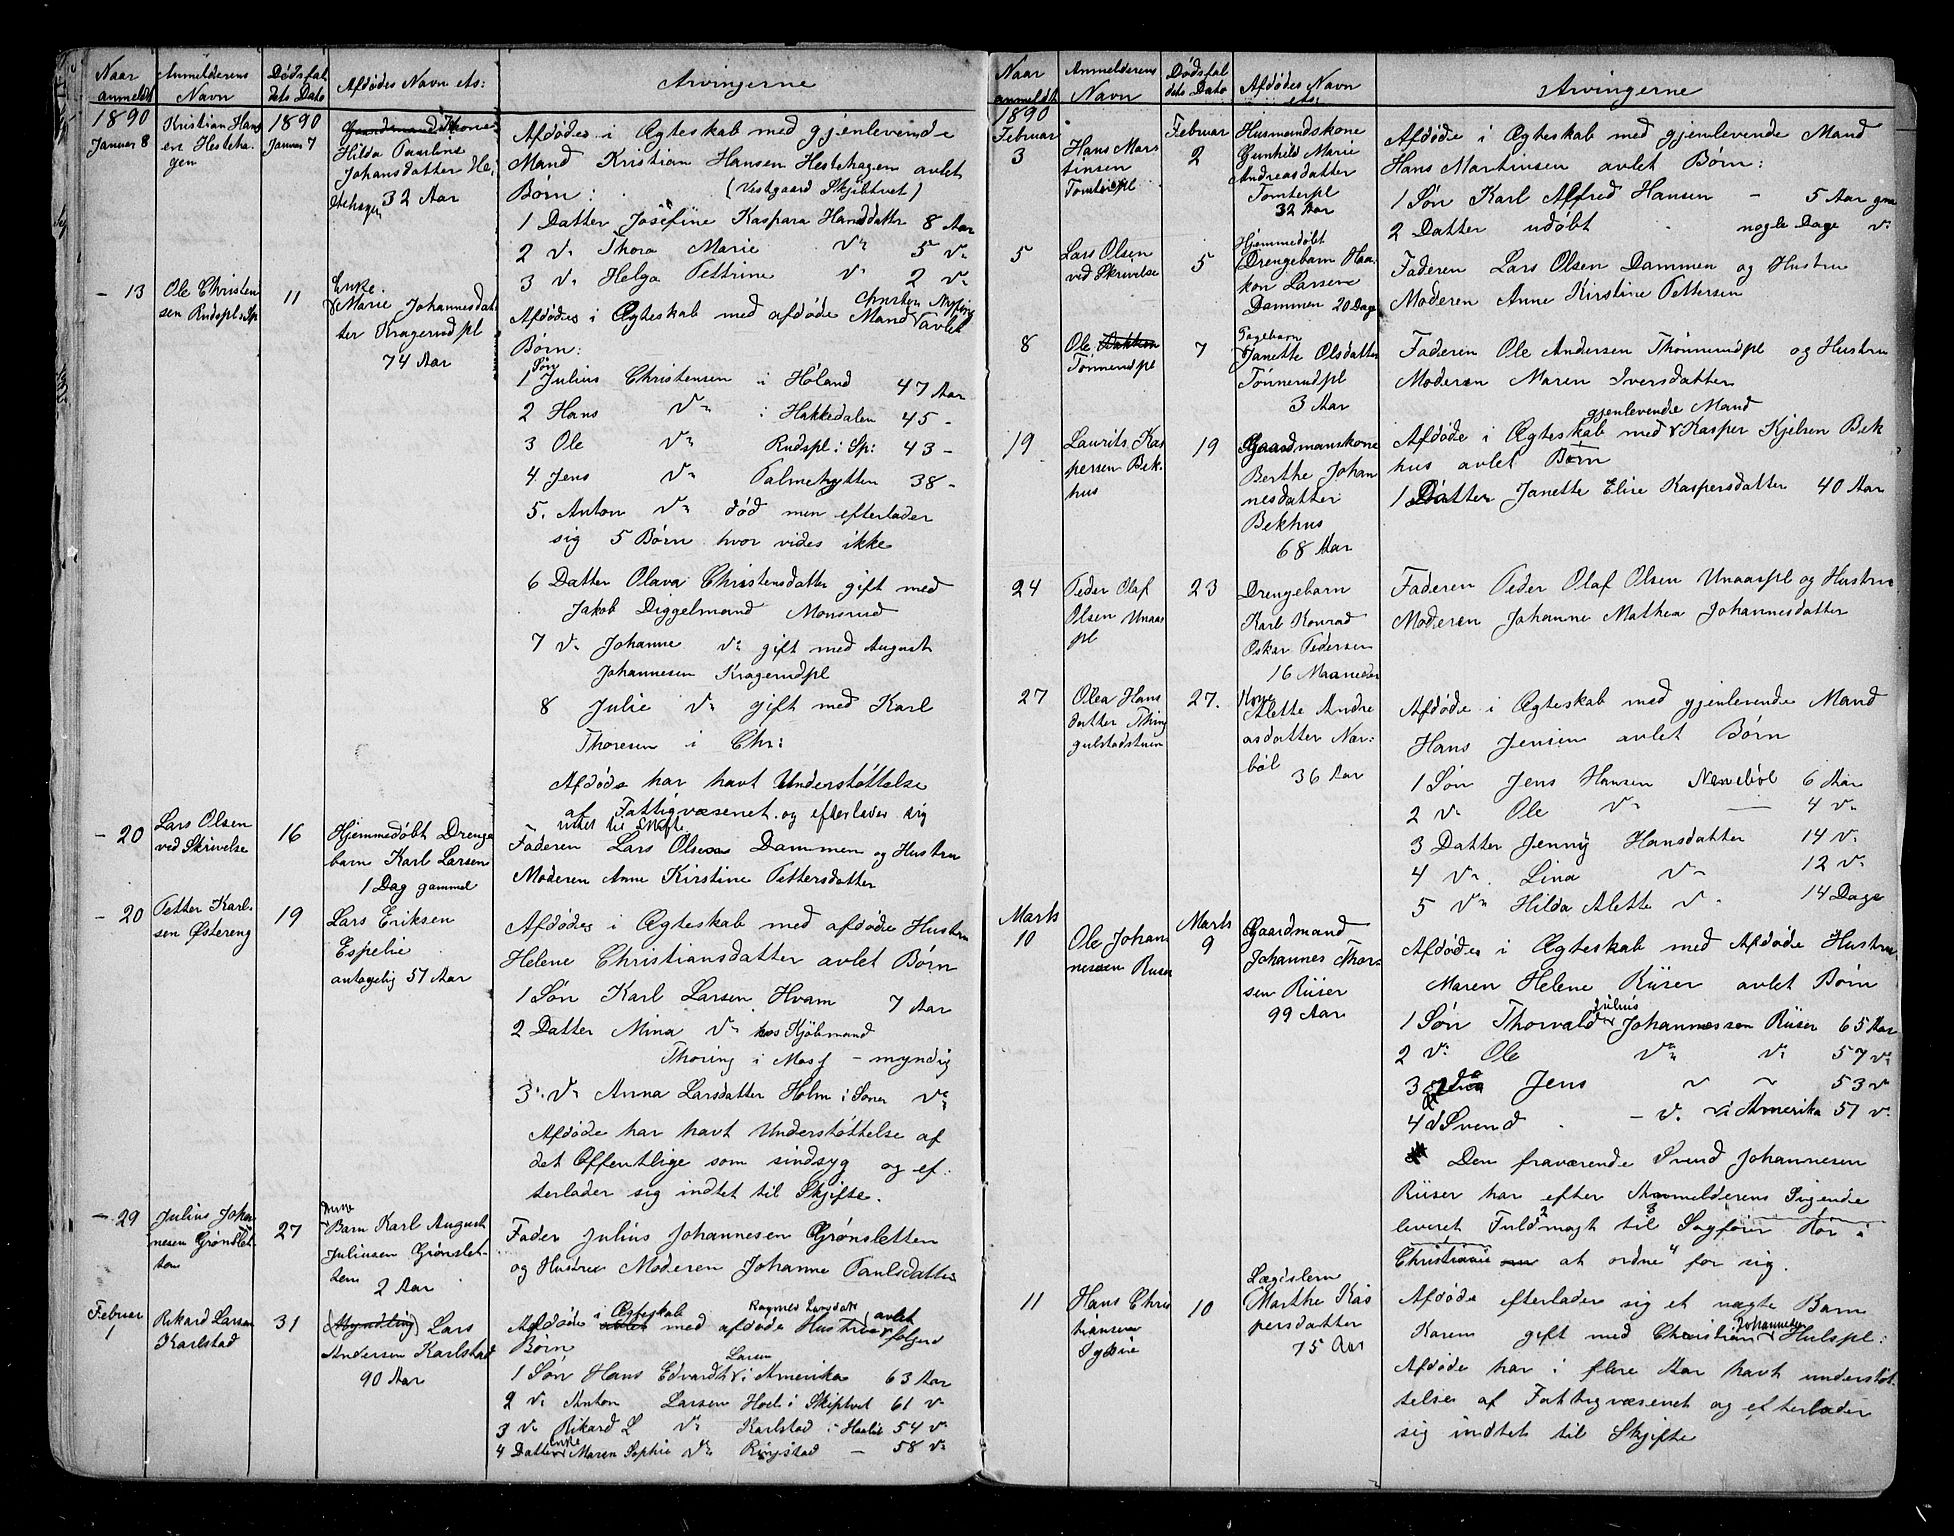 Naar anmeldt
Anmelderens Navn
Dødsfaldets Dato
Afdødes Navn ets:
Arvingerne
1890
Januar 8
Kristian Hansen Hestehagen
1890
Januar 7
Gaardmands Kone
Hilda Pauline
Johansdatter Hestehagen
32 Aar
Afdødes i Ægteskab med gjenlevende
Mand Kristian Hansen Hestehagen avlet
Børn: (Vestgaard Skjiltvet)
1 Datter Josefine Kaspara Hansdatter 8 Aar
2 do Thora Marie do 5 do
3 do Helga Pettrine do 2 do
- 13
Ole Christensen Rudspl i Sp
11
Enke.
Marie Johannesdatter Kragerudpl
74 Aar
Afdødes i Ægteskab med afdøde Mand Christen avlet
Børn:
1 Søn Julius Christensen i Høland 47 Aar
2 Hans do i Hakkedalen 45 -
3 Ole do Rudspl i Sp: 43 -
4 Jens do Palmehytten 38 -
5. Anton do død men efterlader
sig 5 Børn hvor vides ikke
6 Datter Olava Christensdatter gift med
Jakob Diggelmand Monsrud
7 do Johanne do gift med August
Johannesen Kragerudpl
8 Julie do gift med Karl
Thoresen i Chr:
Afdøde har havt Understøttelse
af Fattigvæsenet og efterlader sig
intet til Skifte
- 20
Lars Olsen
ved Skrivelse
16
Hjemmedøbt Drengebarn Karl Larsen
1 Dag gammel
Faderen Lars Olsen Dammen og Hustru
Moderen Anne Kirstine Pettersdatter
- 20
Petter Karlsen Østereng
19
Lars Eriksen
Espelie
antagelig 51 Aar
Afdødes i Ægteskab med afdøde Hustru
Helene Christiansdatter avlet Børn
1 Søn Karl Larsen Hvam 7 Aar
2 Datter Mina do hos Kjøbmand
Thoring i Moss - myndig
3. do Anna Larsdatter Holm i Soner do
Afdøde har havt Understøttelse af
det Offentlige som sindsyg og efterlader sig indtet til Skjifte.
- 29
Julius Johannesen Grønsletten
27
Barn Karl August
Juliusen Grønsletten
2 Aar
Fader Julius Johannesen Grønsletten
og Hustru Moderen Johanne Paulsdatter
Februar 1
Rikard Larsen
Karlstad
31
(Myndling) Lars
Andersen Karlstad
90 Aar
Afdøde i Ægteskab avlet med afdøde Hustru Ragnes Larsdatr avlet følgend
Børn
1 Søn Hans Edvardt Larsen i Amerika 63 Aar
2 do Anton Larsen Hoel i Skiptvet 61 do
3 do Rikard L do Karlstad i Haabøl 54 do
4 Datter Enke Maren Sophie do Ringstad - 58 do
Naar anmeldt
Anmelderens Navn
Dødsfaldets Dato
Afdødes Navn ets:
Arvingerne
1890
Februar
3
Hans Martinsen
Tomterpl
Februar
2
Husmandskone
Gunhild Marie
Andreasdatter
Tomterpl
32 Aar
Afdøde i Ægteskab med gjenlevende Mand
Hans Martinsen avlet Børn:
1 Søn Karl Alfred Hansen - 5 Aar gm
2 Datter udøbt nogle Dage do
5
Lars Olsen
ved Skrivelse
5
Hjemmedøbt
Drengebarn Haakon Larsen
Dammen 20 Dage
Faderen Lars Olsen Dammen og Hustru
Moderen Anne Kirstine Pettersen
8
Ole
Tønnerudpl
7
Pigebarn
Janette Olsdatter
Tønnerudpl
3 Aar
Faderen Ole Andersen Thønnerudpl og Hustru
Moderen Maren Iversdatter
19
Laurits Kaspersen Bekhus
19
Gaardmanskone
Berthe Johannesdatter
Bekhus
68 Aar
Afdøde i Ægteskab med gjenlevende Mand Kasper Kjelsen Bekhus avlet Børn
1 Datter Janette Elise Kaspersdatter 40 Aar
24
Peder Olaf
Olsen Unaaspl
23
Drengebarn
Karl Konrad
Oskar Pedersen
16 Maaneder
Faderen Peder Olaf Olsen Unaaspl og Hustru
Moderen Johanne Mathea Johannesdatter
27
Olea Hansdatter Thingulstadstuen
27.
Kone
Alette Andreasdatter Narbøl
36 Aar
Afdøde i Ægteskab med gjenlevende Mand
Hans Jensen avlet Børn
1 Søn Jens Hansen 6 Aar
2 do Ole do 4 do
3 Datter Jenny Hansdatter 14 do
4 do Lina do 12 do
5 do Hilda Alette do 14 Dage
Marts
10
Ole Johannessen Riiser
Marts
9
Gaardmand
Johannes Thorsen Riiser
99 Aar
Afdødes i Ægteskab med Afdøde Hustru
Maren Helene Riiser avlet Børn
1 Søn Thorvald Julius Johannessen Riiser 65 Aar
2 do Ole do do 57 do
3 do Jens do do 53 do
4 do Svend - do i Amerika 51 do
Den fraværende Svend Johannesen
Riiser har efter Anmelderens Sigende
leveret Fuldmagt til Sagfører i
Christiania at ordne for sig.
11
Hans Christiansen
10
Lægdslem
Marthe Kaspersdatter
75 Aar
Afdøde efterlader sig et uægte Barn
Karen gift med Christian Johannesen Hulspl:
Afdøde har i flere Aar havt understøttelse af Fattigvæsenet og efterlader
sig indtet til Skjifte